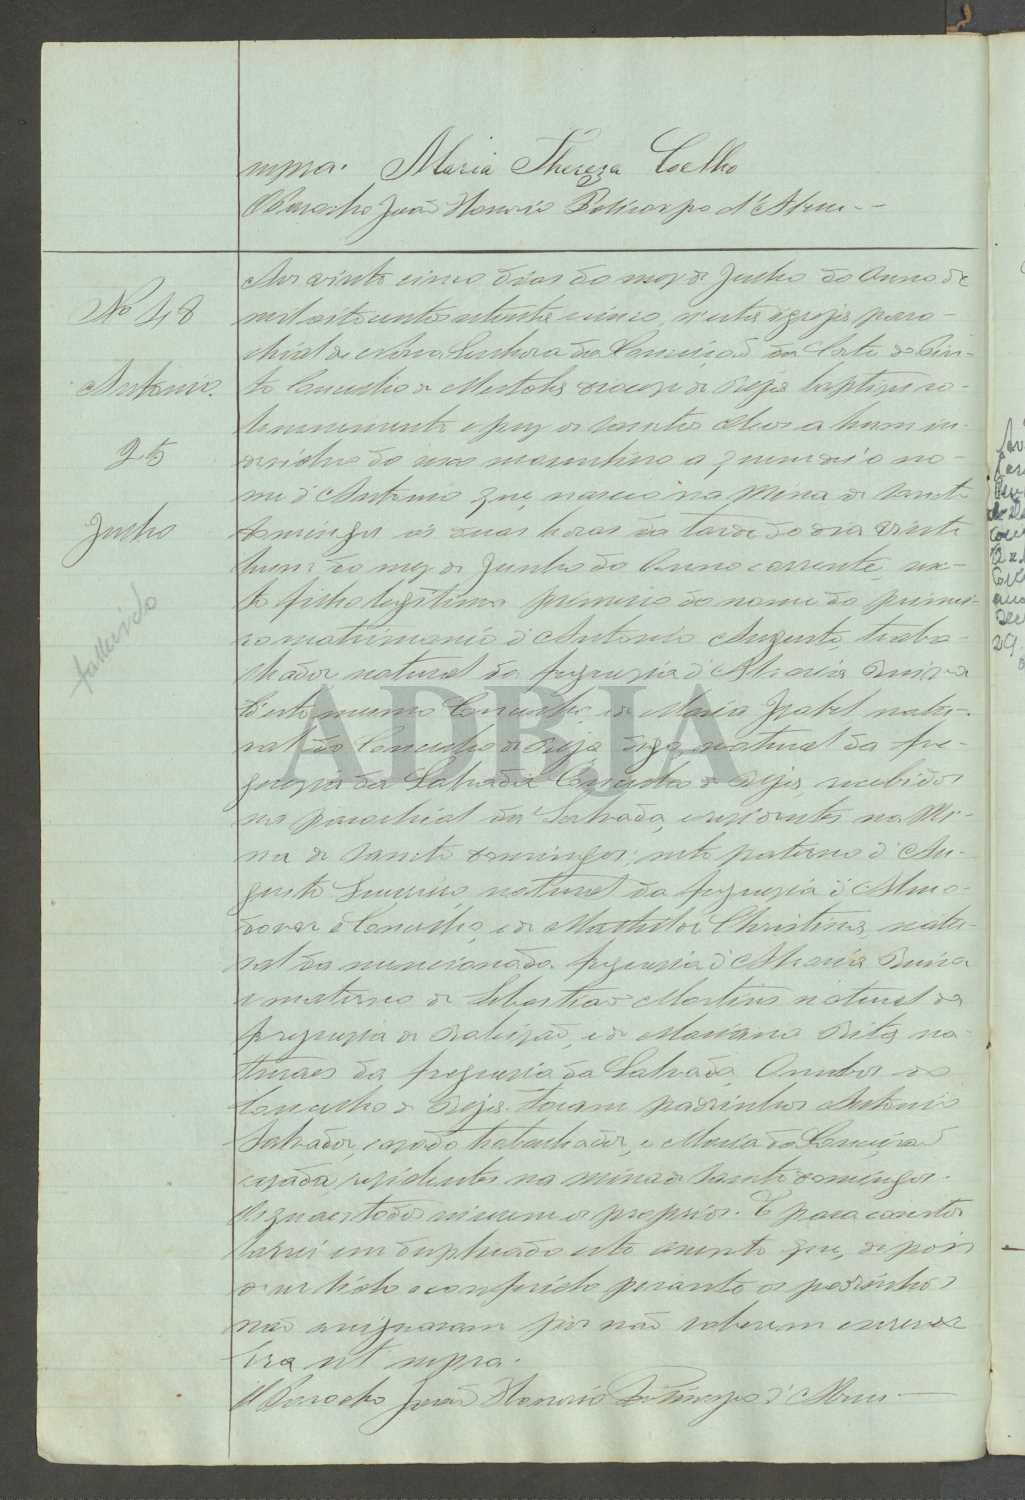 supra. Maria Thereza Coelho
O Parocho João Honorio Policarpo d'Abreu
Nº 48
Antonio.
25
Julho
fallecido
Aos vinte cinco dias do mez de Julho do Anno de
mil oito centos setenta e cinco, n'esta Igreja paro-
chial de Nossa Senhora da Conceição da Corte do Pin-
to Concelho de Mertola diocese de Beja baptizei so-
lemnemente e puz os Sanctos Oleos a hum in-
dividuo do sexo masculino a quem dei o no-
me d'Antonio que nasceu na Mina de Sancto
Domingos ás duas horas da tarde do dia vinte
hum do mez de Junho do Anno corrente,
filho legitimo primeiro do nome do primei-
ro matrimonio d'Antonio Augusto, traba-
lhador natural da freguezia d'Alcaria Ruiva
d'este mesmo Concelho, e de Maria Izabel natu-
ral do Concelho de Beja digo, natural da fre-
guezia da Salvada Concelho de Beja, recebidos
na parochial da Salvada, e residentes na Mi-
na de Sancto Domingos; neto paterno d'Au-
gusto Guerreiro, natural da freguezia d'Almo-
dovar e Concelho, e de Mathilde Christina, natu-
ral da mencionada freguezia d'Alcaria Ruiva
e materno de Sebastião Martins natural da
freguezia de Baleizão, e de Mariana Rita na-
turaes da freguezia da Salvada, Ambos do
Concelho de Beja. Foram padrinhos Antonio
Salvador, casado, trabalhador, e Maria da Conceição
casada, residentes na mina de Sancto Domingos.
os proprios. E para constar
lavrei em duplicado este assento que, depois
de ser lido e conferido perante os padrinhos
não assignaram por não saberem escrever
Era ut supra.
O Parocho João Honorio Policarpo d'Abreu
ADBJA